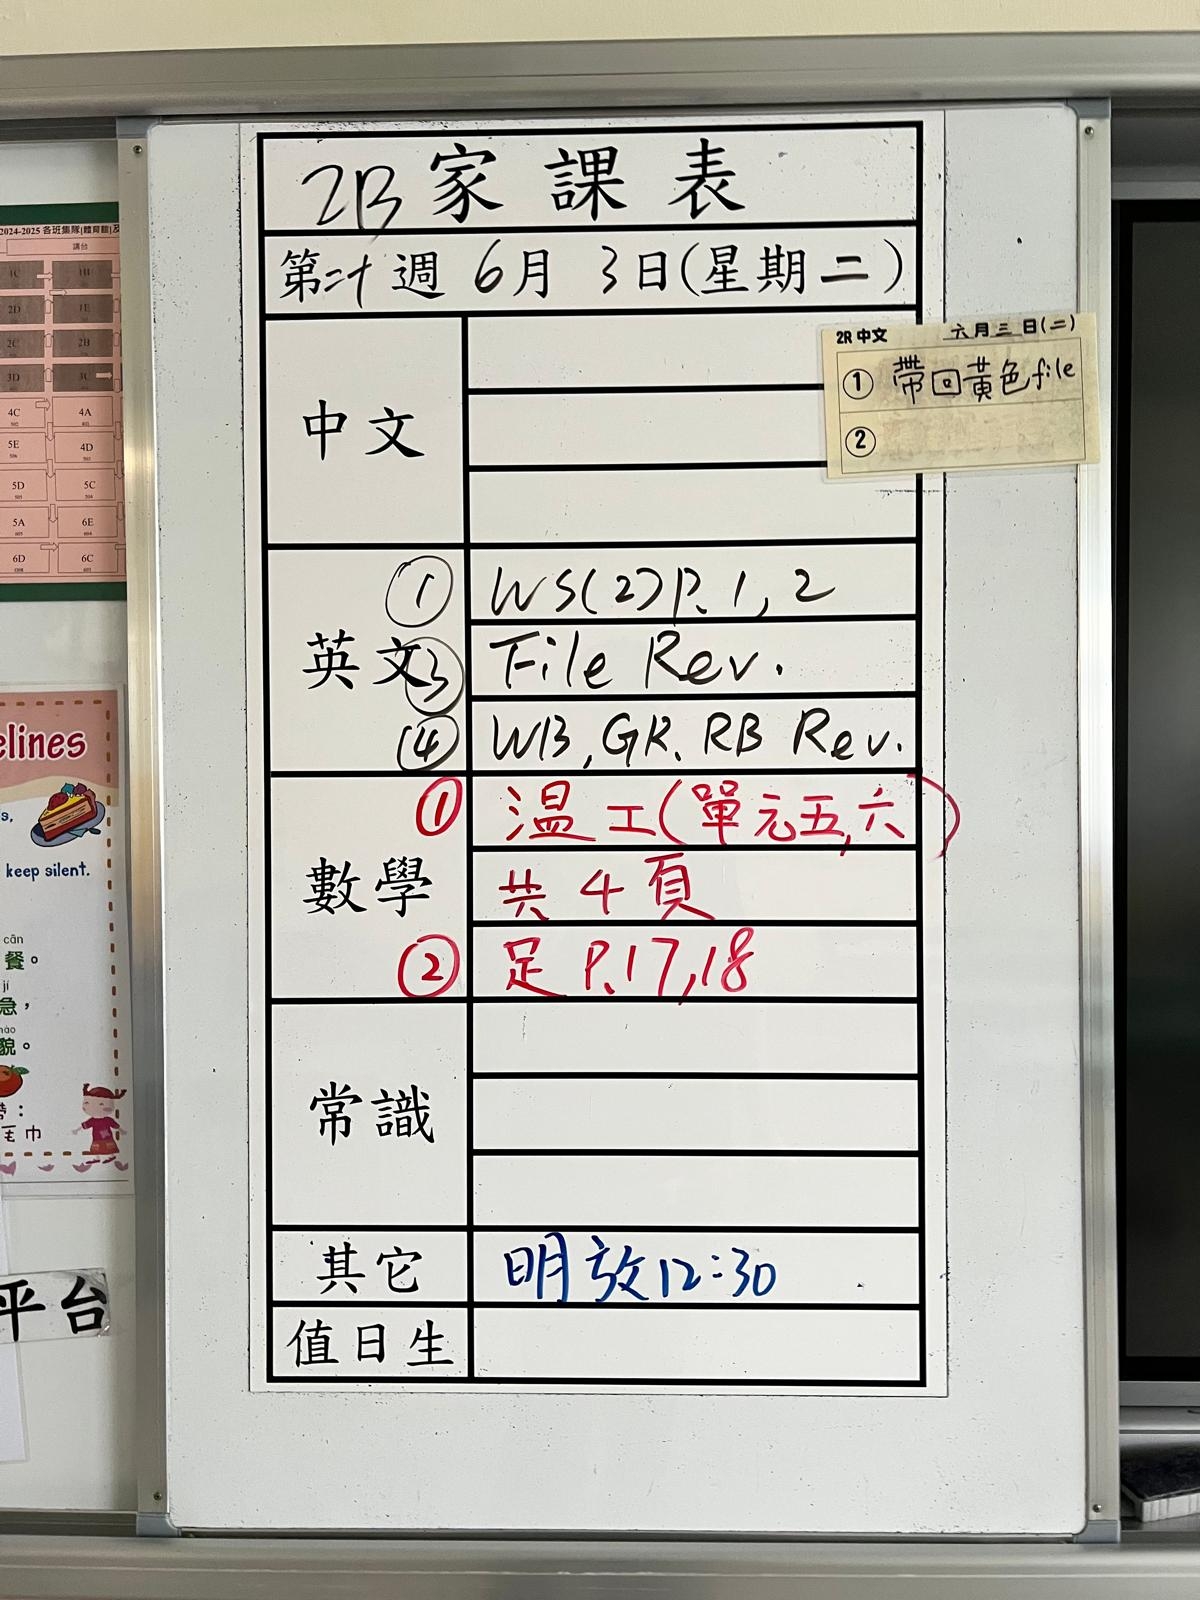 2B 家課表
第二十週 6月 3日(星期二)
中文
2R 中文 六月三日(二)
① 帶回黃色file
②
英文
① WS(2) P. 1, 2
③ File Rev.
④ WB, GR. RB Rev.
數學
① 溫工(單元五,六)
共4頁
② 足 P.17,18
常識
其它
明放12:30
值日生
2024-2025 各班集隊(體育館)及
講台
1C 1B
2D 1E
2C 2B
3D
4C 4A
5E 4D
5D 5C
5A 6E
6D 6C
elines
s,
keep silent.
cān
餐。
jí
急，
mào
貌。
帶：
毛巾
平台